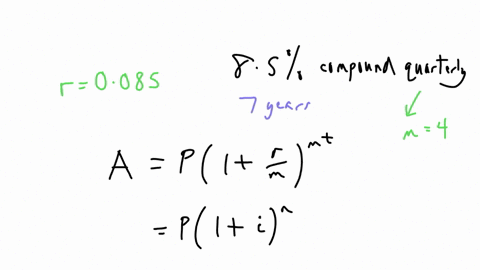 8.5% compound quarterly
r = 0.085
7 years
m = 4
A = P(1 + r/m)^mt
= P(1 + i)^n